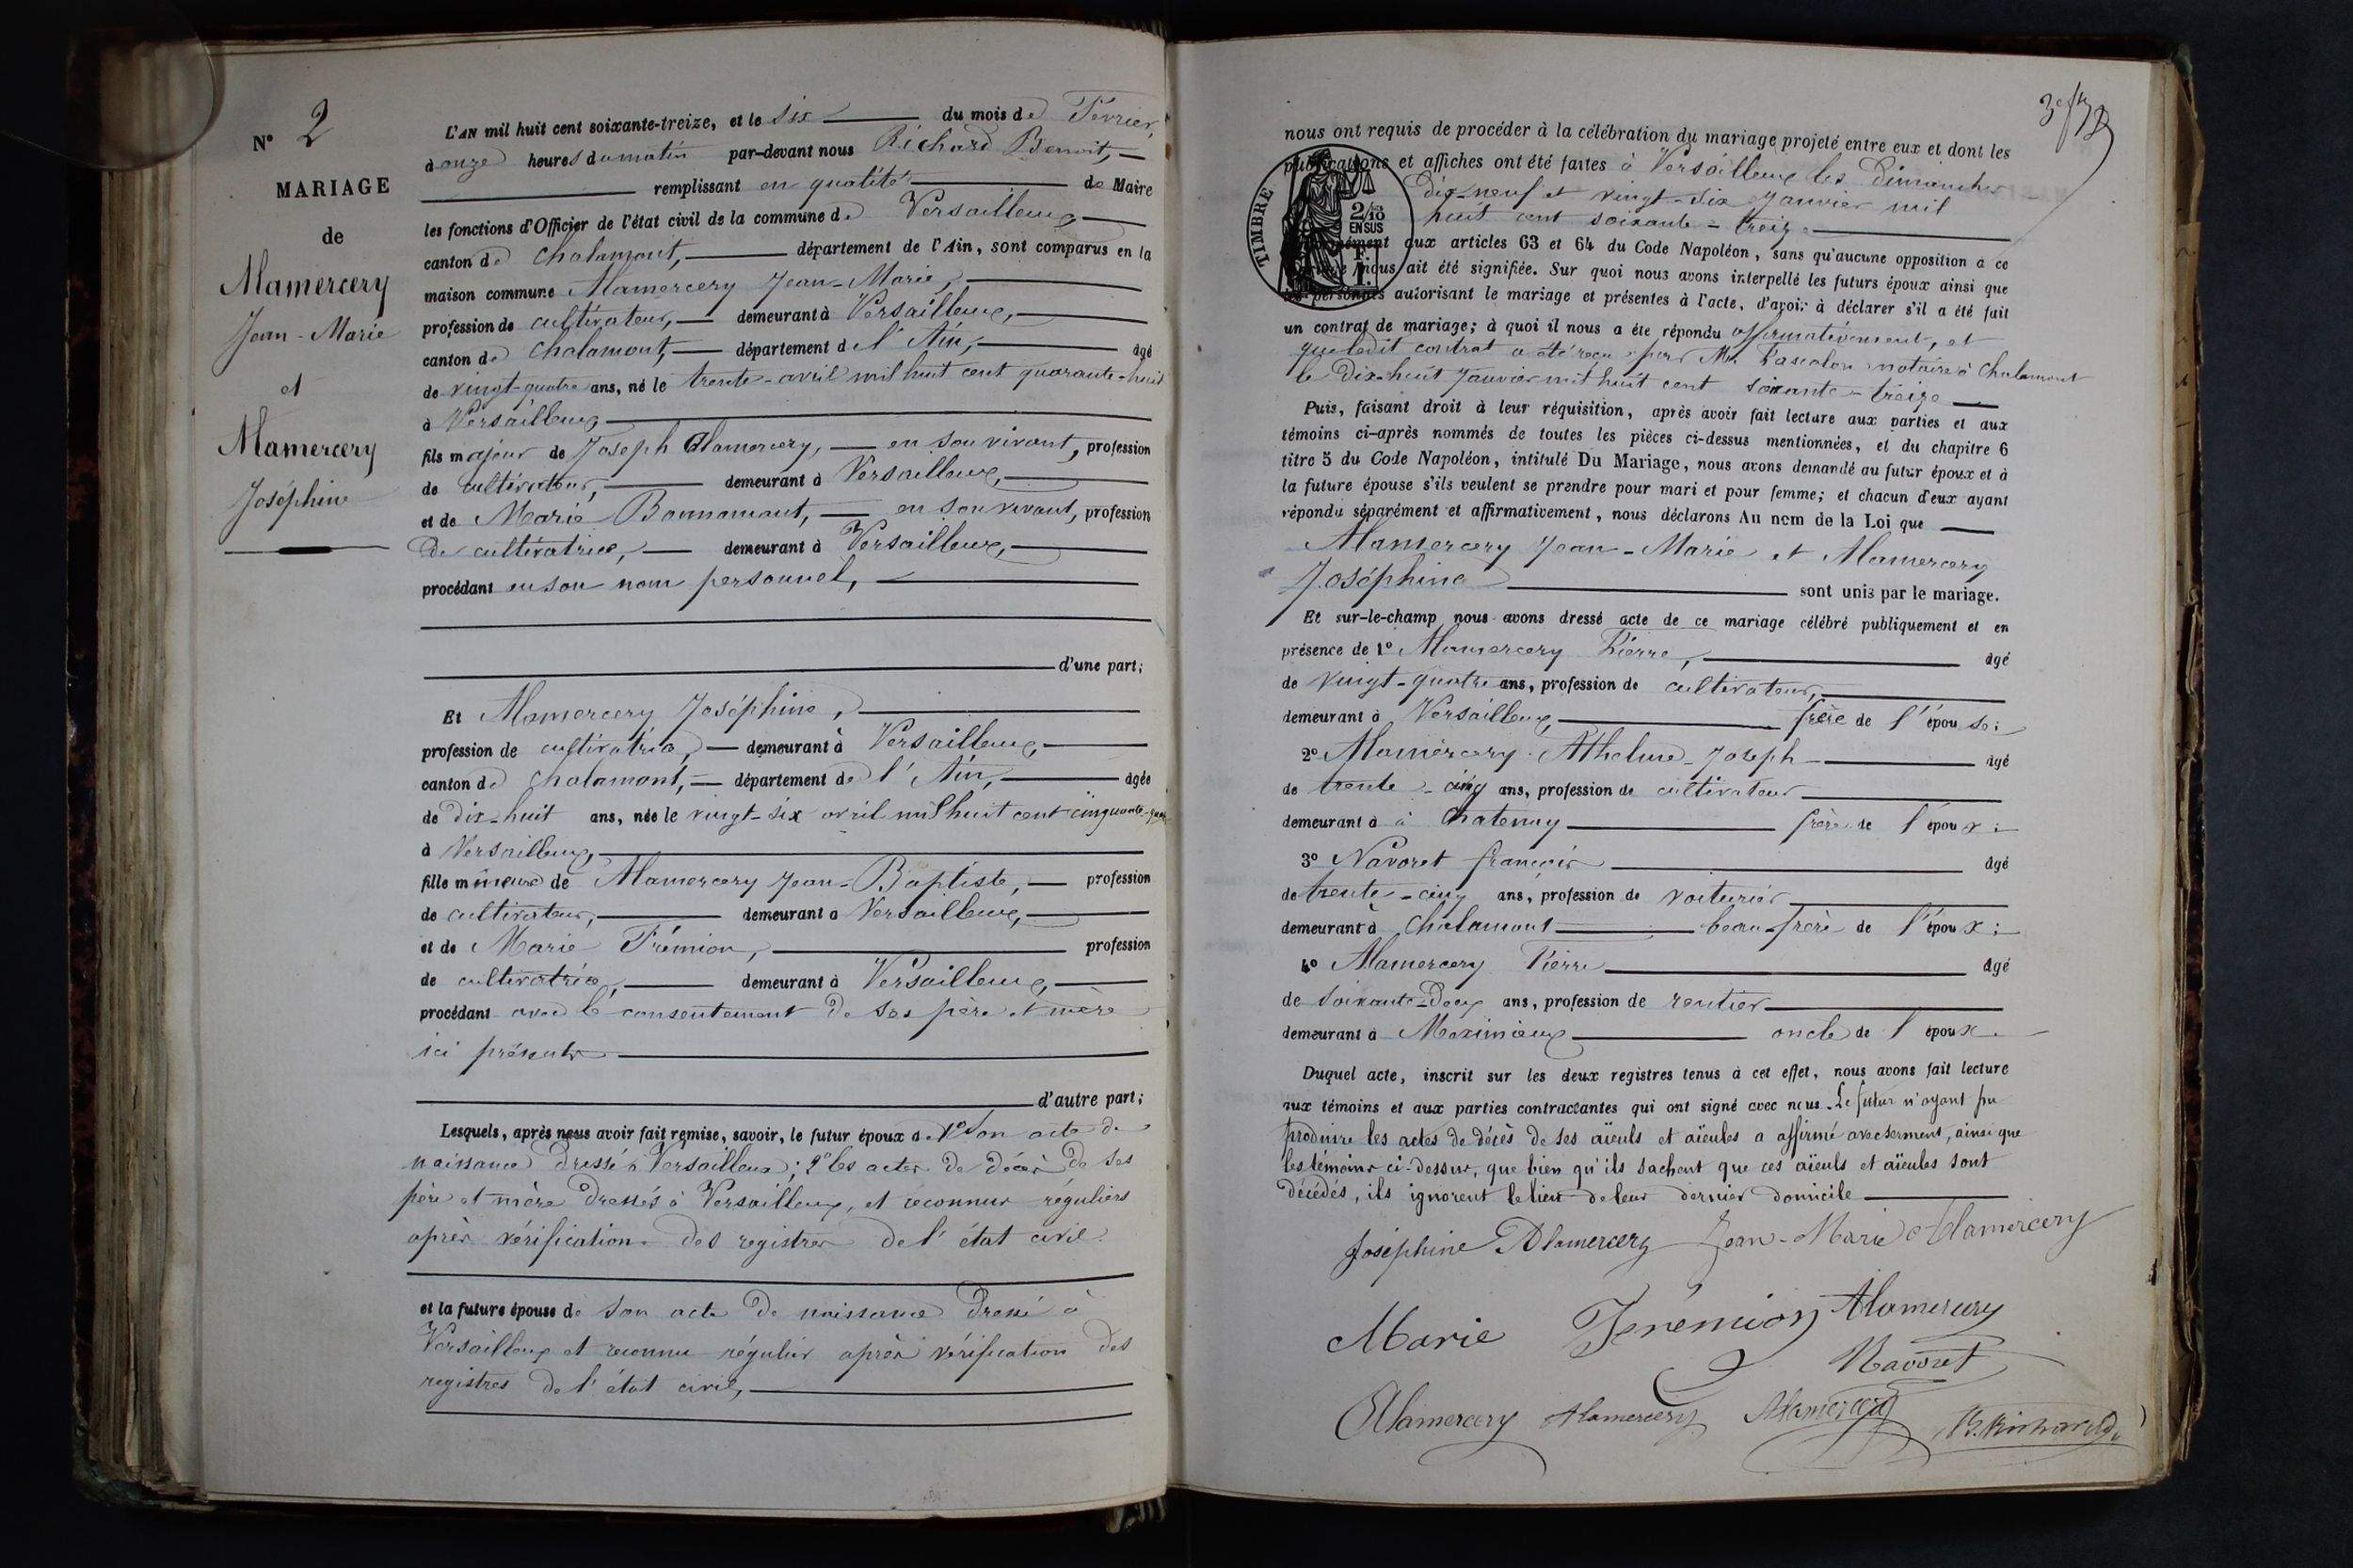 N° 2
MARIAGE
de
Alamercery
Jean-Marie
et
Alamercery
Joséphine
L'AN mil huit cent soixante-treize, et le six du mois de Février,
à onze heures du matin par-devant nous Richard Benoit,
remplissant en qualité de Maire
les fonctions d'Officier de l'état civil de la commune de Versailleux
canton de Chalamont, département de l'Ain, sont comparus en la
maison commune Alamercery Jean-Marie,
profession de cultivateur, demeurant à Versailleux,
canton de Chalamont, département de l'Ain, âgé
de vingt-quatre ans, né le trente-avril mil huit cent quarante-huit
à Versailleux
fils majeur de Joseph Alamercery, en son vivant, profession
de cultivateur, demeurant à Versailleux,
et de Marie Bonnamant, en son vivant, profession
de cultivatrice, demeurant à Versailleux,
procédant en son nom personnel,
d'une part;
Et Alamercery Joséphine,
profession de cultivatrice, demeurant à Versailleux,
canton de Chalamont, département de l'Ain, âgée
de dix-huit ans, née le vingt-six avril mil huit cent cinquante-
à Versailleux,
fille mineure de Alamercery Jean-Baptiste, profession
de cultivateur, demeurant à Versailleux,
et de Marie Frémion, profession
de cultivatrice, demeurant à Versailleux,
procédant avec le consentement de ses père et mère
ici présents
d'autre part;
Lesquels, après nous avoir fait remise, savoir, le futur époux de 1° son acte de
naissance dressé à Versailleux; 2° les actes de décès de ses
père et mère dressés à Versailleux, et reconnus réguliers
après vérification des registres de l'état civil
et la future épouse de son acte de naissance dressé à
Versailleux et reconnu régulier après vérification des
registres de l'état civil,
nous ont requis de procéder à la célébration du mariage projeté entre eux et dont les
publications et affiches ont été faites à Versailleux les dimanches
dix-neuf et vingt-six janvier mil
huit cent soixante-treize
TIMBRE
2/10
EN SUS
aux articles 63 et 64 du Code Napoléon, sans qu'aucune opposition a ce
nous ait été signifiée. Sur quoi nous avons interpellé les futurs époux ainsi que
les personnes autorisant le mariage et présentes à l'acte, d'avoir à déclarer s'il a été fait
un contrat de mariage; à quoi il nous a été répondu affirmativement, et
que ledit contrat a été reçu par Me Pascalon notaire à Chalamont
le dix-huit janvier mil huit cent soixante-treize
Puis, faisant droit à leur réquisition, après avoir fait lecture aux parties et aux
témoins ci-après nommés de toutes les pièces ci-dessus mentionnées, et du chapitre 6
titre 5 du Code Napoléon, intitulé Du Mariage, nous avons demandé au futur époux et à
la future épouse s'ils veulent se prendre pour mari et pour femme; et chacun d'eux ayant
répondu séparément et affirmativement, nous déclarons Au nom de la Loi que
Alamercery Jean-Marie et Alamercery
Joséphine sont unis par le mariage.
Et sur-le-champ nous avons dressé acte de ce mariage célébré publiquement et en
présence de 1° Alamercery Pierre, âgé
de vingt-quatre ans, profession de cultivateur,
demeurant à Versailleux, frère de l'épouse;
2° Alamercery Joseph âgé
de trente-cinq ans, profession de cultivateur
demeurant à à Chatenay frère de l'époux;
3° Navoret françois âgé
de trente-cinq ans, profession de voiturier
demeurant à Chalamont beau-frère de l'époux;
4° Alamercery Pierre âgé
de soixante-deux ans, profession de rentier
demeurant à Meximieux oncle de l'époux.
Duquel acte, inscrit sur les deux registres tenus à cet effet, nous avons fait lecture
aux témoins et aux parties contractantes qui ont signé avec nous. Le futur n'ayant pu
produire les actes de décès de ses aïeuls et aïeules a affirmé avec serment, ainsi que
les témoins ci-dessus, que bien qu'ils sachent que ces aïeuls et aïeules sont
décédés, ils ignorent le lieu de leur dernier domicile
Joséphine Alamercery Jean-Marie Alamercery
Marie Frémion Alamercery
Navoret
Alamercery Alamercery Alamercery B. Richard